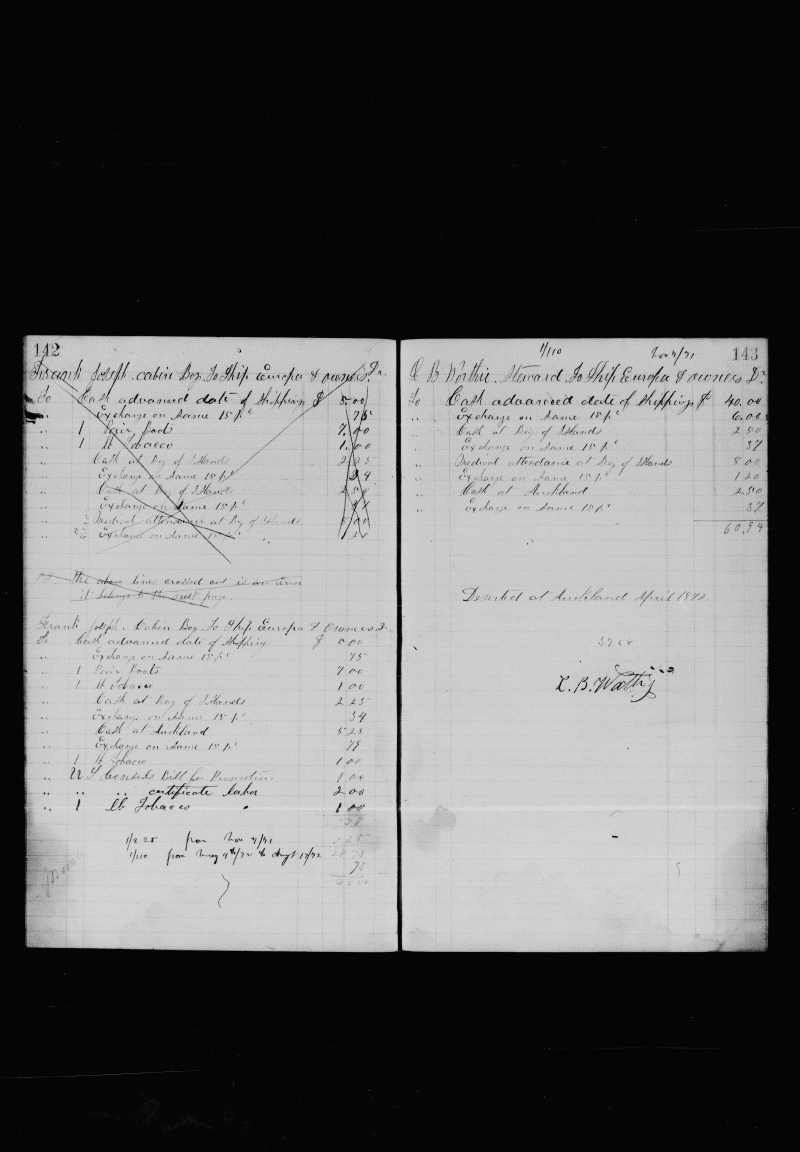 142
Frank Joseph. cabin Boy. To Ship Europa & owners Dr.
To Cash advanced date of Shipping $ 5.00
" Exchange on Same 15 pc 75
" 1 Pair boots 7.00
" 1 lb Tobacco 1.00
" Cash at Bay of Islands 2 25
" Exchange on Same 15 pc 34
" Cash at Bay of Islands 2 50
" Exchange on Same 15 pc
" Medical attendance at Bay of Islands
" Exchange on Same 15 pc
The above line crossed out is an error
it belongs to the next page.
Frank Joseph. Cabin Boy. To Ship Europa & Owners Dr.
To Cash advanced date of Shipping $ 5 00
" Exchange on Same 15 pc 75
" 1 Pair Boots 7 00
" 1 lb Tobacco 1 00
" Cash at Bay of Islands 2 25
" Exchange on Same 15 pc 34
" Cash at Auckland 5 25
" Exchange on Same 15 pc 79
" 1 lb Tobacco 1 00
" U S Consuls Bill for 1 00
" " " certificate labor 2 00
" 1 lb Tobacco 1 00
1/225 from Nov 7/71
1/110 from May 9th/72 to Augt 17/72
143
1/110 Nov 7/71
B Steward. To Ship Europa & owners Dr.
To Cash advanced date of Shipping $ 40.00
" Exchange on Same 15 pc 6.00
" Cash at Bay of Islands 2 50
" Exchange on Same 15 pc 37
" Medical attendance at Bay of Islands 8 00
" Exchange on Same 15 pc 1 20
" Cash at Auckland 2 50
" Exchange on Same 15 pc 37
60.94
Deserted at Auckland April 1872
L. B.